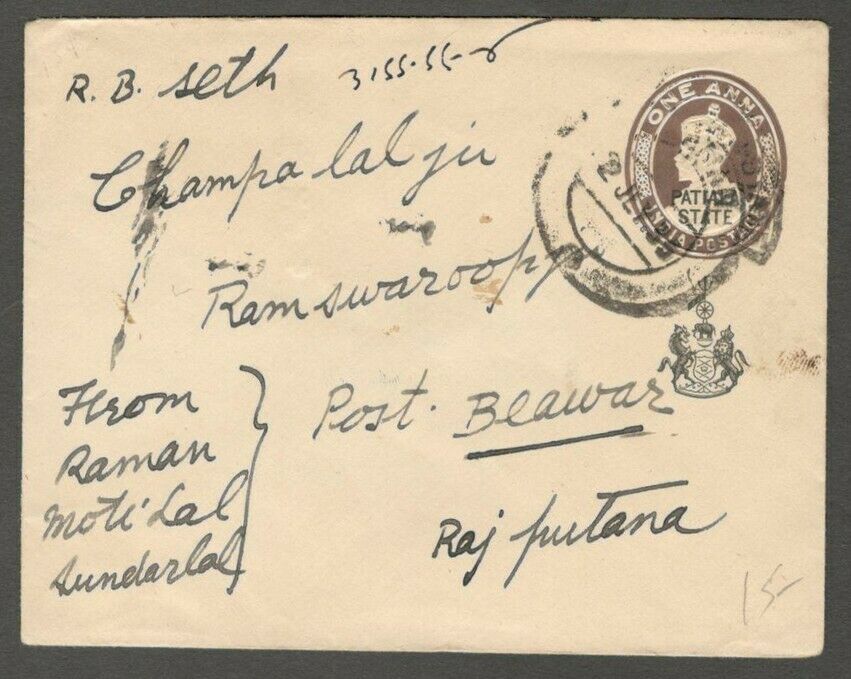 R. B. Seth
3155-55-8
Champa lal ji
Ramswaroop
Post. Beawar
Raj putana
From
Raman
Moti Lal
Sundarlal
ONE ANNA
PATIALA
STATE
INDIA POSTAGE
15-